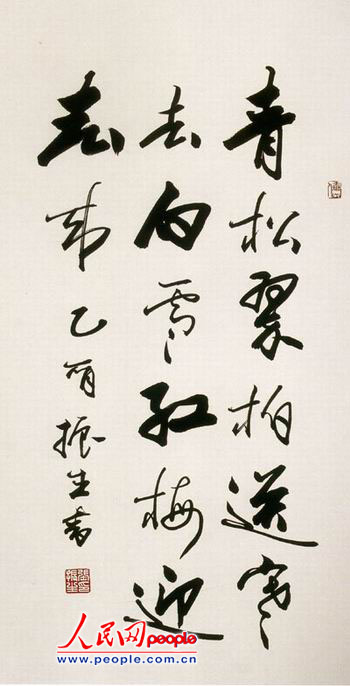 青松翠柏送寒
去白雪红梅迎
春来 乙酉 振生書
人民网people
www.people.com.cn